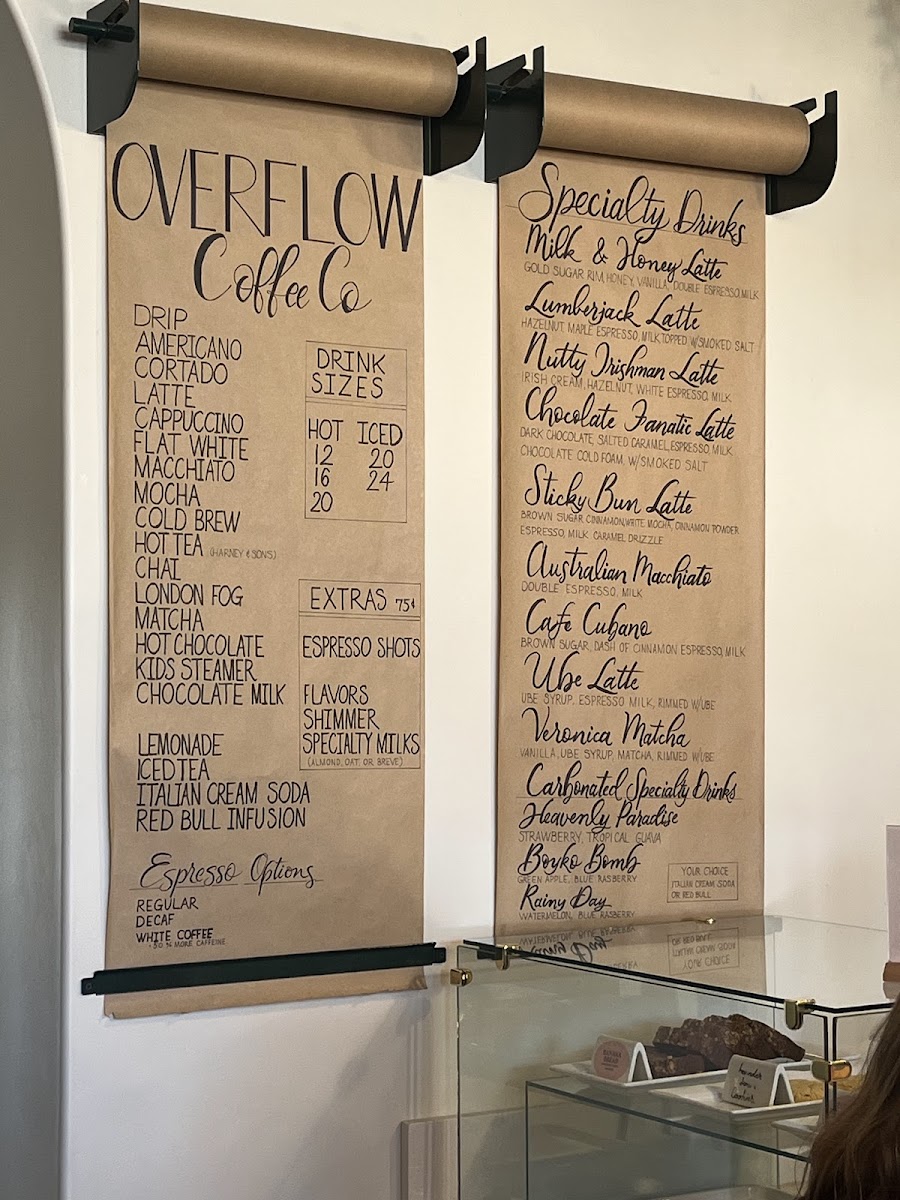 OVERFLOW
Coffee Co
DRIP
AMERICANO
CORTADO
LATTE
CAPPUCCINO
FLAT WHITE
MACCHIATO
MOCHA
COLD BREW
HOT TEA (HARNEY & SONS)
CHAI
LONDON FOG
MATCHA
HOT CHOCOLATE
KIDS STEAMER
CHOCOLATE MILK
LEMONADE
ICED TEA
ITALIAN CREAM SODA
RED BULL INFUSION
Espresso Options
REGULAR
DECAF
WHITE COFFEE
50% MORE CAFFEINE
DRINK
SIZES
HOT ICED
12 20
16 24
20
EXTRAS 75¢
ESPRESSO SHOTS
FLAVORS
SHIMMER
SPECIALTY MILKS
(ALMOND, OAT OR BREVE)
Specialty Drinks
Milk & Honey Latte
GOLD SUGAR RIM, HONEY, VANILLA, DOUBLE ESPRESSO, MILK
Lumberjack Latte
HAZELNUT, MAPLE ESPRESSO, MILK TOPPED W/SMOKED SALT
Nutty Irishman Latte
IRISH CREAM, HAZELNUT, WHITE ESPRESSO, MILK
Chocolate Fanatic Latte
DARK CHOCOLATE, SALTED CARAMEL, ESPRESSO, MILK
CHOCOLATE COLD FOAM, W/SMOKED SALT
Sticky Bun Latte
BROWN SUGAR CINNAMON, WHITE MOCHA, CINNAMON POWDER
ESPRESSO, MILK CARAMEL DRIZZLE
Australian Macchiato
DOUBLE ESPRESSO, MILK
Cafe Cubano
BROWN SUGAR, DASH OF CINNAMON ESPRESSO, MILK
Ube Latte
UBE SYRUP, ESPRESSO MILK, RIMMED W/UBE
Veronica Matcha
VANILLA, UBE SYRUP, MATCHA, RIMMED W/UBE
Carbonated Specialty Drinks
Heavenly Paradise
STRAWBERRY, TROPICAL GUAVA
Boyko Bomb
GREEN APPLE, BLUE RASBERRY
Rainy Day
WATERMELON, BLUE RASBERRY
YOUR CHOICE
ITALIAN CREAM SODA
OR RED BULL